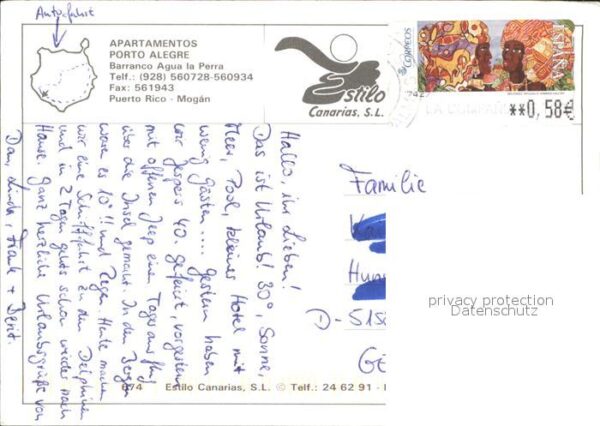 Autofahrt
APARTAMENTOS
PORTO ALEGRE
Barranco Agua la Perra
Telf.: (928) 560728-560934
Fax: 561943
Puerto Rico - Mogán
Estilo
Canarias, S.L.
CORREOS
ESPAÑA
**0,58€
Hallo, ihr Lieben!
Das ist Urlaub! 30°, Sonne,
Meer, Pool, kleines Hotel mit
wenig Gästen .... gestern haben
wir Jespers 40. gefeiert, vorgestern
mit offenem Jeep einen Tagesausflug
über die Insel gemacht. In den Bergen
waren es 10°!! und Regen. Heute machen
wir eine Schifffahrt zu den Delphinen
und in 2 Tagen gehts schon wieder nach
Hause. Ganz herzliche Urlaubsgrüße von
Dan, Linda, Frank + Berit.
Familie
Hun
D-
privacy protection
Datenschutz
674 Estilo Canarias, S.L. © Telf.: 24 62 91 -